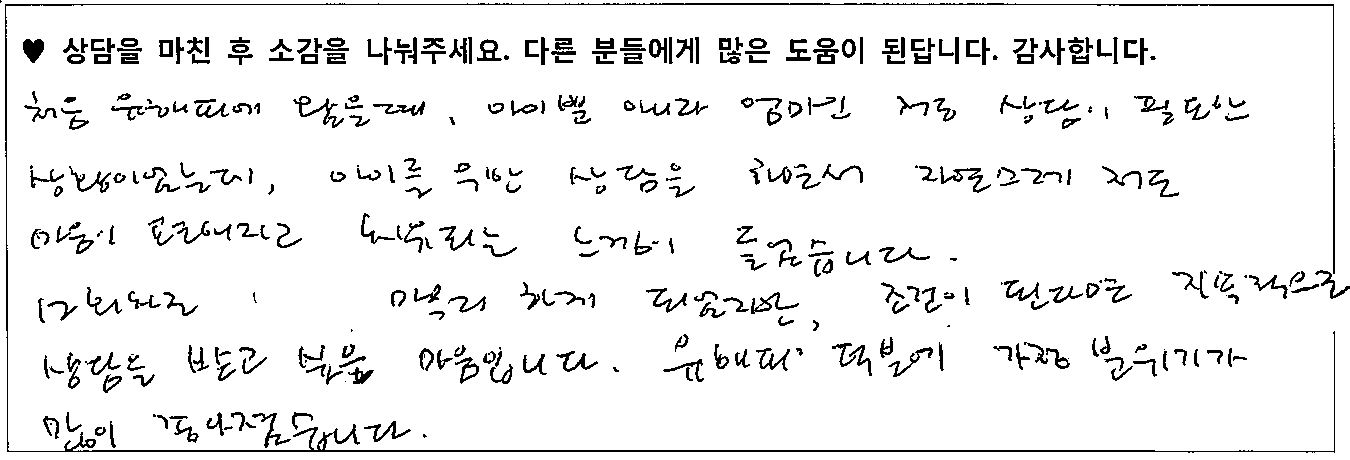 ♥ 상담을 마친 후 소감을 나눠주세요. 다른 분들에게 많은 도움이 된답니다. 감사합니다.
처음 윤해피에 왔을때, 아이뿐 아니라 엄마인 저도 상담이 필요한
상황이었는데, 아이를 위한 상담을 하면서 자연스레 저도
마음이 편해지고 치유되는 느낌이 들었습니다.
12회차로 마무리 하게 되었지만, 조건이 된다면 지속적으로
상담을 받고 싶은 마음입니다. 윤해피 덕분에 가정 분위기가
많이 좋아졌습니다.